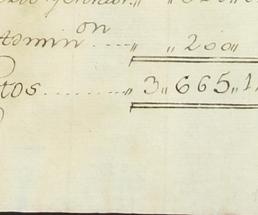 Admin.on .... " " 200"
tos ........ " 3"665"1"